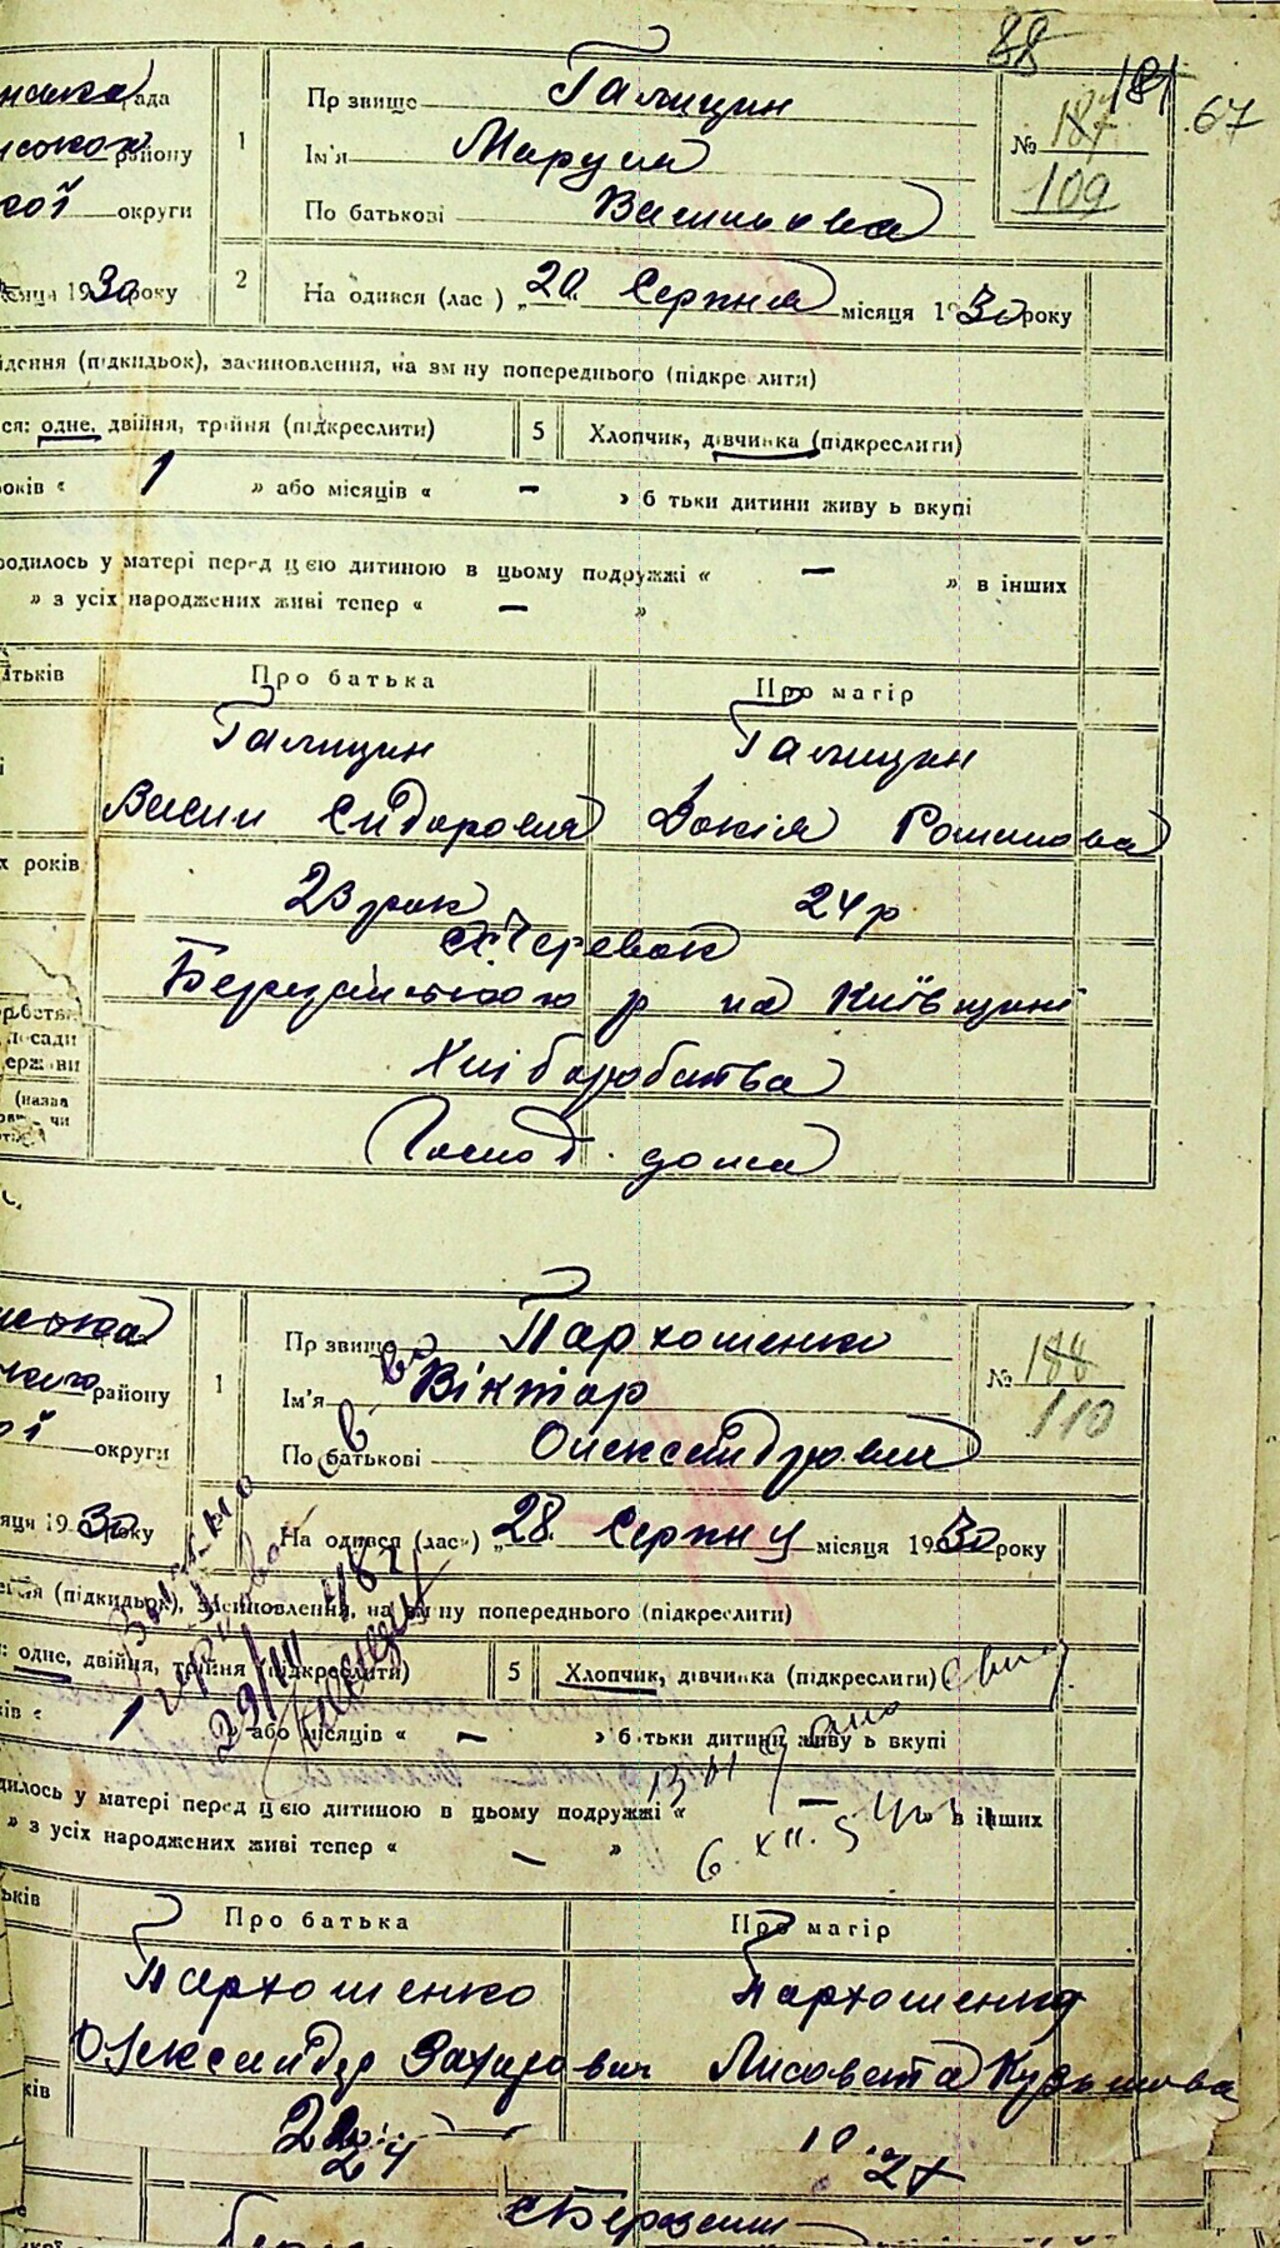 88
181
67
рада
Пр звище Галицин
187
№ 109
району
1
Ім'я Маруся
округи
По батькові Васильовна
1930 року
2
На одився (лас ) „20“ Серпня місяця 1930 року
(підкидьок), засиновлення, на зм ну попереднього (підкре лити)
ся: одне, двійня, трійня (підкреслити)
5
Хлопчик, дівчинка (підкреслити)
років « 1 » або місяців « – » б тьки дитини живу ь вкупі
родилось у матері перед цією дитиною в цьому подружжі « – » в інших
» з усіх народжених живі тепер « – »
атьків
Про батька
Про матір
Галицин
Галицин
Васил Сидорович
Вокія Романовна
х років
23 рок
24 р
с. Черевок
Березанського р на Київщині
Хліборобства
Господ. дома
Пр звище Пархоменко
№ 188
110
району
1
Ім'я Віктор
округи
По батькові Олександрович
1930 року
На одився (лас ) „28“ Серпну місяця 1930 року
(підкидьок), засиновлення, на зм ну попереднього (підкреслити)
одне, двійня, трійня (підкреслити)
5
Хлопчик, дівчинка (підкреслити)
ків « 1 » або місяців « – » б тьки дитини живу ь вкупі
дилось у матері перед цією дитиною в цьому подружжі « – » в інших
» з усіх народжених живі тепер « – »
6. XII.
ьків
Про батька
Про матір
Пархоменко
Пархоменко
Олександр Захарович
Лисовета Кузьмовна
ків
24
27
с Березань